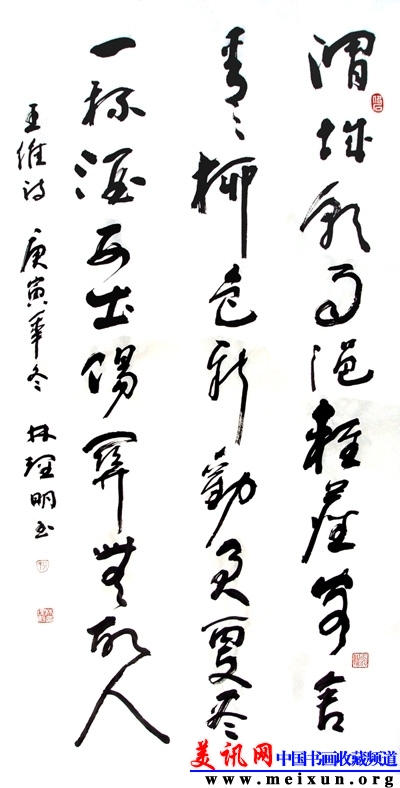 渭城朝雨浥輕塵客舍
青々柳色新勸君更尽
一杯酒西出陽關無故人
王維詩 庚寅年冬 林理明书
美讯网 中国书画收藏频道
www.meixun.org